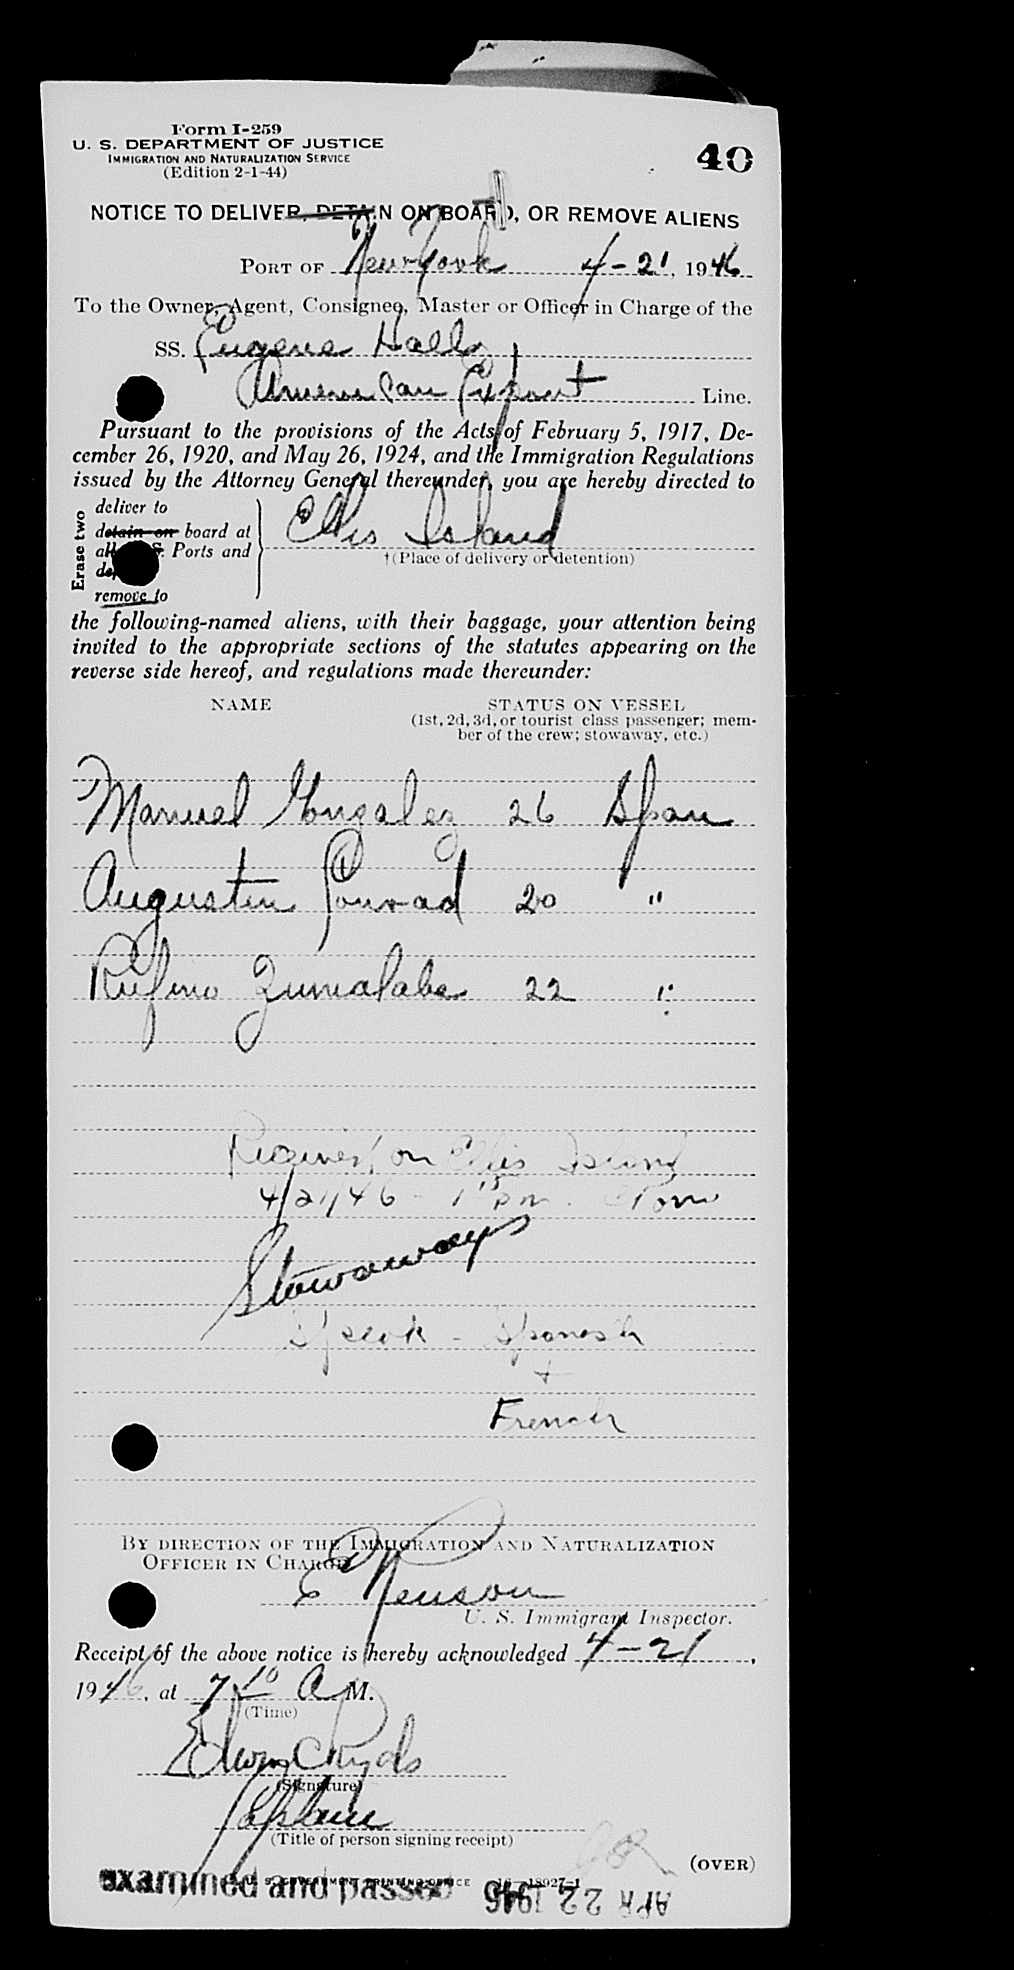 Form I-259
U. S. DEPARTMENT OF JUSTICE
IMMIGRATION AND NATURALIZATION SERVICE
(Edition 2-1-44)
40
NOTICE TO DELIVER, DETAIN ON BOARD, OR REMOVE ALIENS
PORT OF New York 4-21, 1946
To the Owner, Agent, Consignee, Master or Officer in Charge of the
SS. Eugene Hale
American Export Line.
Pursuant to the provisions of the Acts of February 5, 1917, De-
cember 26, 1920, and May 26, 1924, and the Immigration Regulations
issued by the Attorney General thereunder, you are hereby directed to
Erase two
deliver to
detain on board at
all U.S. Ports and
remove to
Ellis Island
†(Place of delivery or detention)
the following-named aliens, with their baggage, your attention being
invited to the appropriate sections of the statutes appearing on the
reverse side hereof, and regulations made thereunder:
NAME STATUS ON VESSEL
(1st, 2d, 3d, or tourist class passenger; mem-
ber of the crew; stowaway, etc.)
Manuel Gonzalez 26 Span
Augustin Conrad 20 "
Rufino Zumalabe 22 "
Received on Ellis Island
4/21/46 - 1 15 pm.
Stowaways
Speak - Spanish
+
French
BY DIRECTION OF THE IMMIGRATION AND NATURALIZATION
OFFICER IN CHARGE
U. S. Immigrant Inspector.
Receipt of the above notice is hereby acknowledged 4-21,
1946, at 7 10 A M.
(Time)
(Signature)
Captain
(Title of person signing receipt)
(OVER)
U. S. GOVERNMENT PRINTING OFFICE 16-18927-1
examined and passed
APR 22 1946